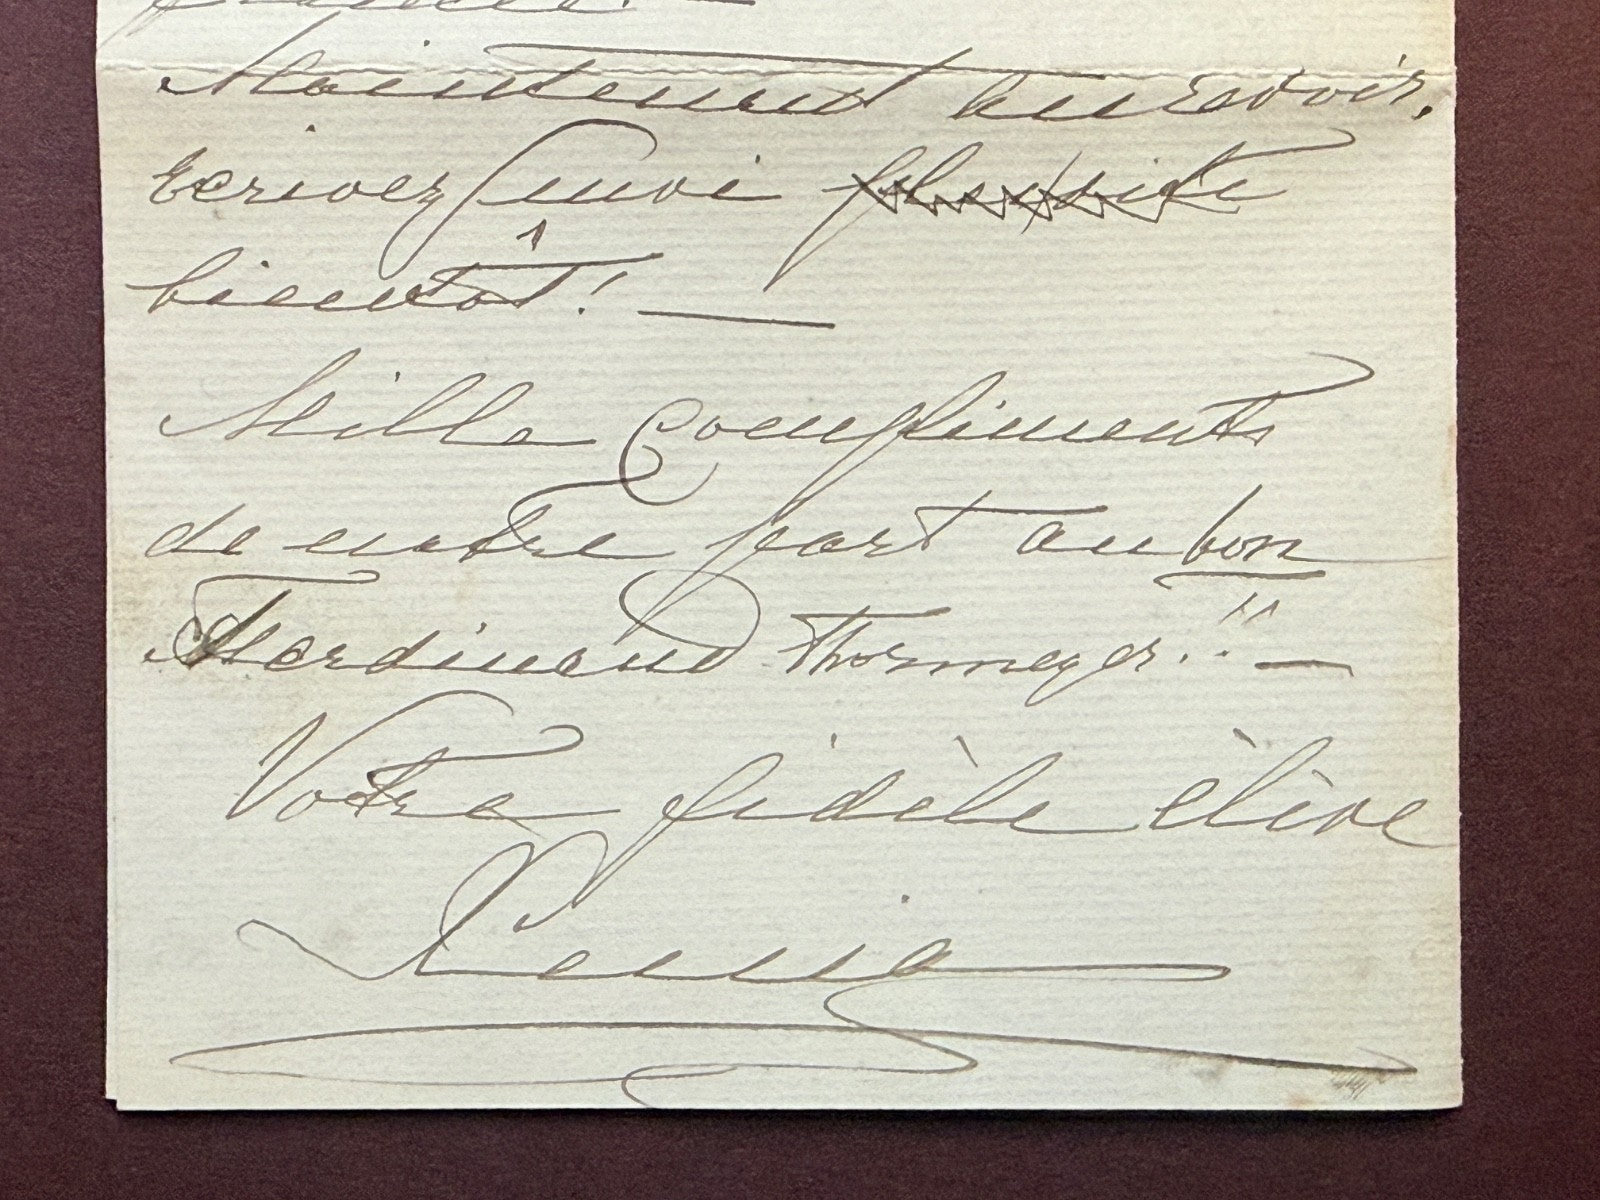 Maintenant au revoir.
Ecrivez moi plus vite
bientôt! —
Mille compliments
de notre part au bon
Ferdinand Thormeyer!! —
Votre fidèle élève
Xenia